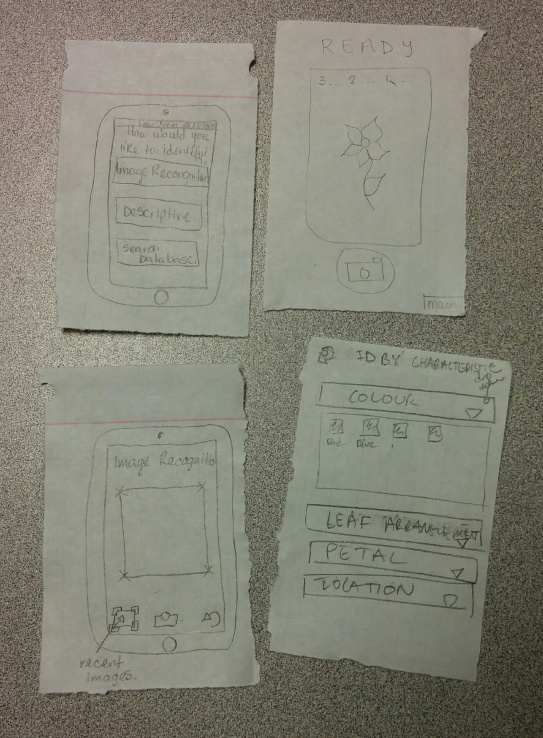 How would you
like to identify
Image Recognition
Descriptive
search
database.
READY
3... 2... 1..
main
Image Recognitio
recent
images.
ID BY CHARACTERISTIC
COLOUR
Red Blue
LEAF ARRANGEMENT
PETAL
LOCATION